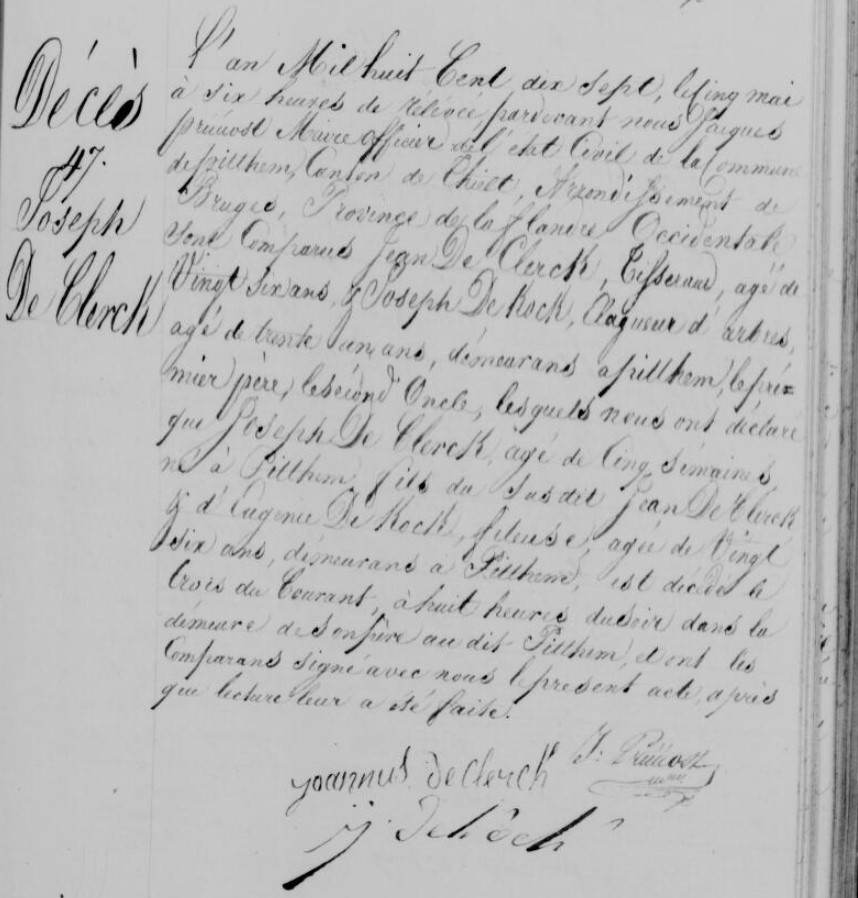 Décès
47.
Joseph
De Clerck
L'an Mil huit Cent dix sept, le cinq mai
à six heures de rélévée pardevant nous Jacques
prüuost Maire officier de l'état Civil de la Commune
de pitthem, Canton de Thielt, Arrondissement de
Bruges, Province de la flandre Occidentale
sont Comparus Jean De Clerck, Tisserand, agé de
Vingt six ans, & Joseph De Kock, Elagueur d'arbres,
agé de trente ans, démeurans a pitthem, le pré=
mier père, le sécond Oncle, lesquels nous ont déclaré
que Joseph De Clerck, agé de Cinq Sémaines,
né à Pitthem, fils du susdit Jean De Clerck
& d'Eugenie De Kock, fileuse, agée de Vingt
six ans, démeurans à Pitthem, est décédé le
trois du Courant, à huit heures du soir dans la
démeure de son père au dit Pitthem, et ont les
Comparans signé avec nous le présent acte, après
que lecture leur a été faite.
J: Prüuost
joannus declerck
j j dekock